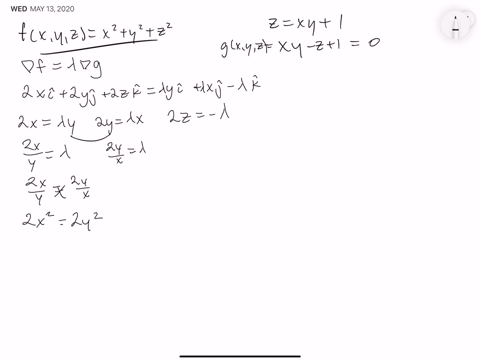 WED MAY 13, 2020
f(x,y,z)=x²+y²+z²
z=xy+1
g(x,y,z)=xy-z+1=0
∇f=λ∇g
2xî+2yĵ+2zk̂=λyî+λxĵ-λk̂
2x=λy 2y=λx 2z=-λ
2x/y=λ 2y/x=λ
2x/y = 2y/x
2x²=2y²